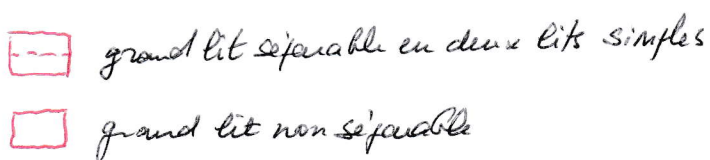 grand lit séparable en deux lits simples
grand lit non séparable